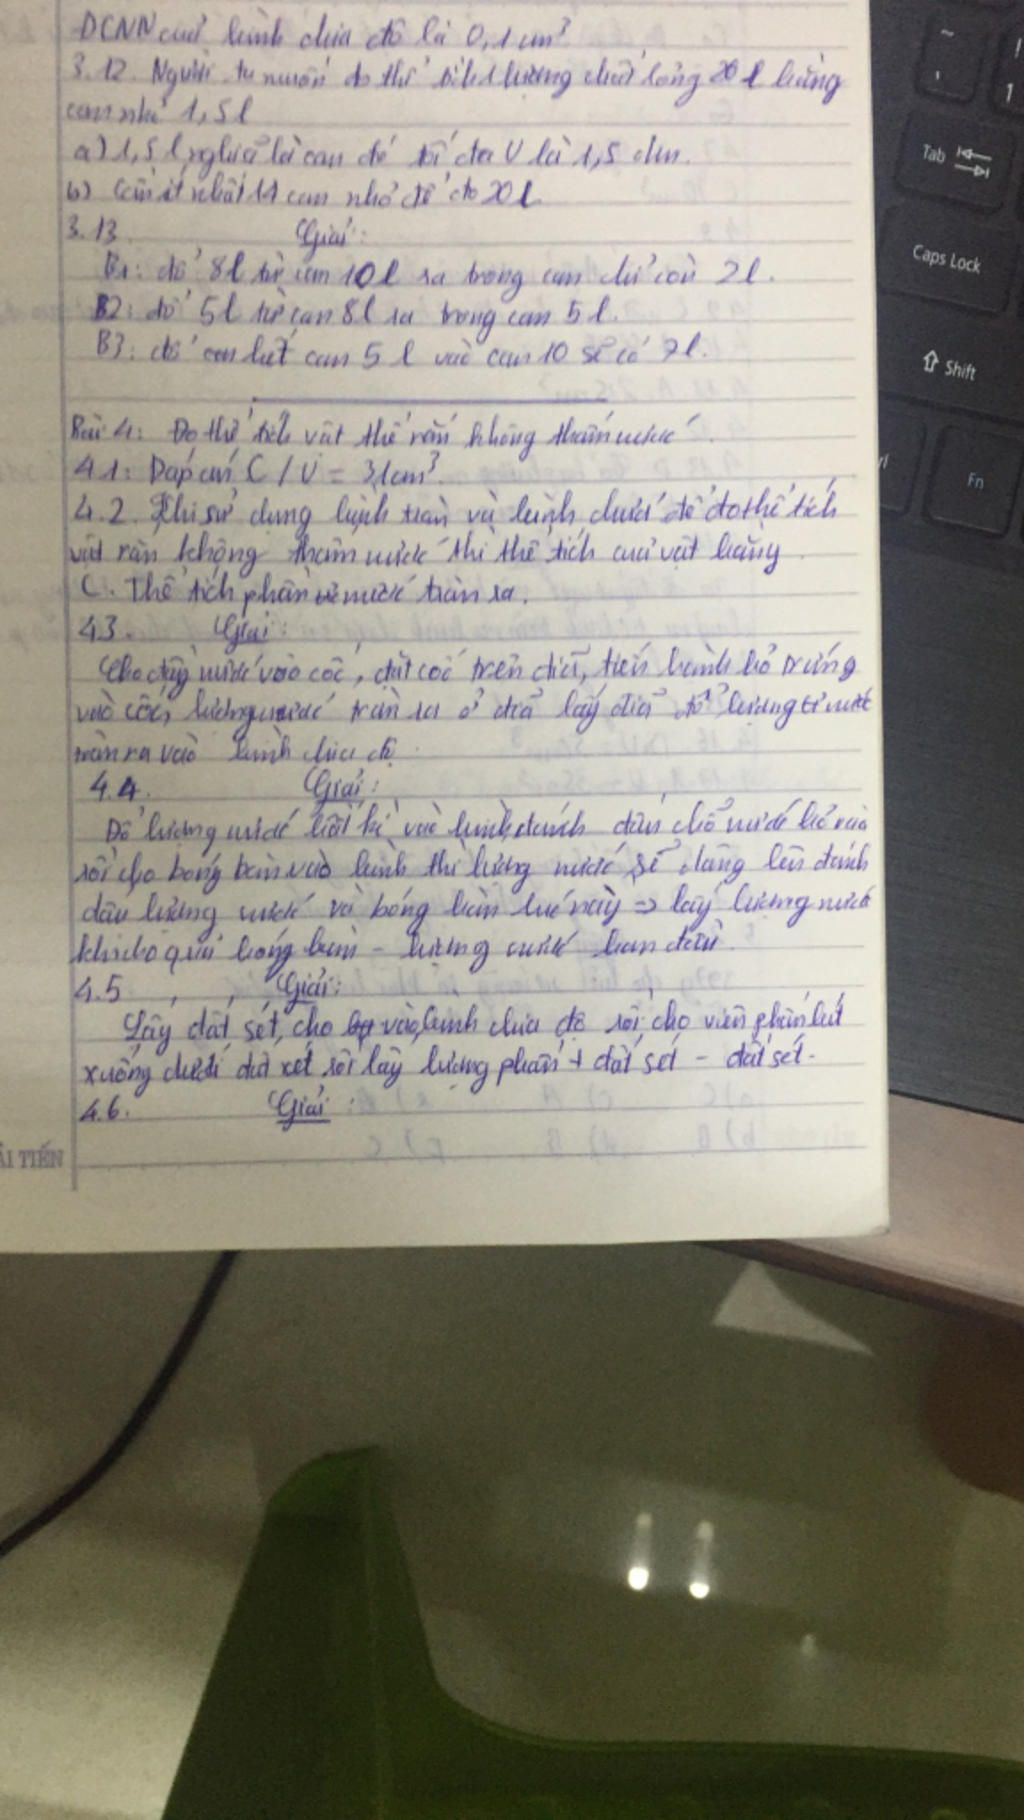 ĐCNN của bình chia độ là 0,1 cm³
3.12. Người ta muốn đo thể tích 1 lượng chất lỏng 20 l bằng
can nhỏ 1,5l
a) 1,5 l nghĩa là can đó tối đa V là 1,5 dm.
b) Cần ít nhất 14 can nhỏ để đo 20 l
3.13. Giải:
B1: đổ 8l từ can 10l ra trong can chỉ còn 2l.
B2: đổ 5l từ can 8l ra trong can 5 l.
B3: đổ can hết can 5 l vào can 10 sẽ có 7l.
Bài 4: Đo thể tích vật thể rắn không thấm nước
4.1: Đáp án C / V = 31cm³.
4.2. Khi sử dụng bình tràn và bình chứa để đo thể tích
vật rắn không thấm nước thì thể tích của vật bằng
C. Thể tích phần nước tràn ra.
4.3. Giải:
Cho đầy nước vào cốc, đặt cốc trên đĩa, tiến hành bỏ trứng
vào cốc, lượng nước tràn ra ở đĩa lấy đĩa đổ lượng nước
tràn ra vào bình chia độ.
4.4. Giải:
Đổ lượng nước bất kì vào bình, đánh dấu chỗ nước bỏ vào
rồi cho bóng bàn vào bình thì lượng nước sẽ dâng lên đánh
dấu lượng nước và bóng bàn lúc này => lấy lượng nước
khi cho quả bóng bàn - lượng nước ban đầu.
4.5 Giải:
Lấy đất sét, cho vào bình chia độ rồi cho viên phấn hút
xuống dưới đất xét rồi lấy lượng phấn + đất sét - đất sét.
4.6. Giải:
ẢI TIẾN
~
!
1
Tab
Caps Lock
Shift
Fn